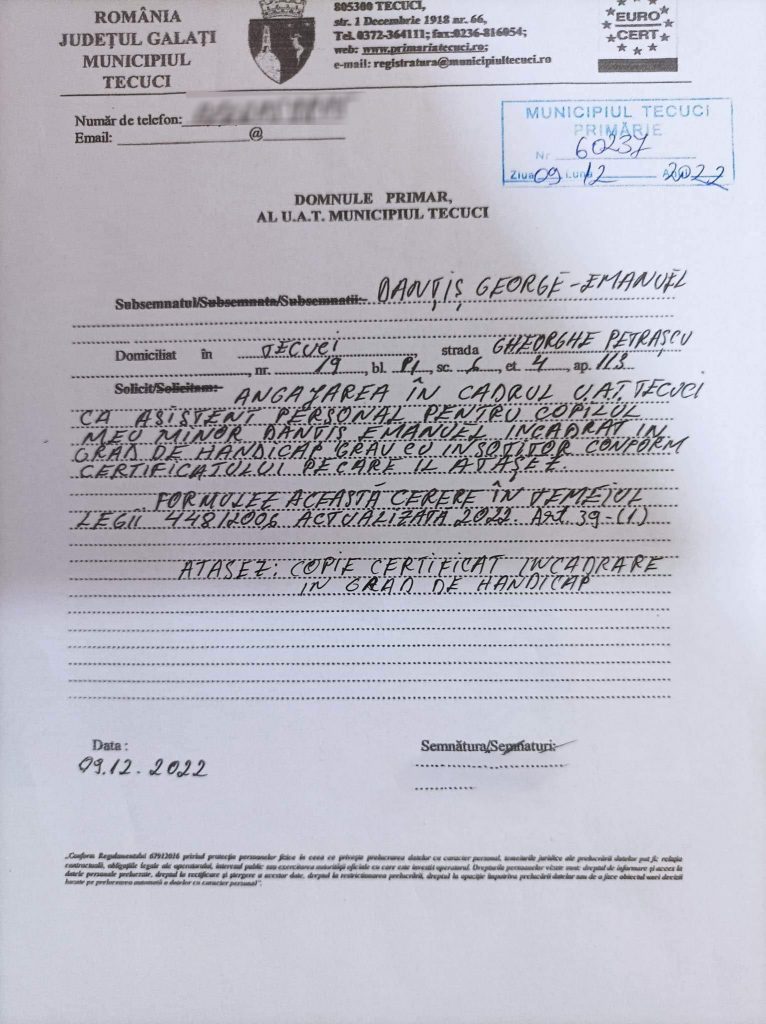 ROMÂNIA
JUDEŢUL GALAŢI
MUNICIPIUL
TECUCI
805300 TECUCI,
str. 1 Decembrie 1918 nr. 66,
Tel. 0372-364111; fax:0236-816054;
web: www.primariatecuci.ro;
e-mail: registratura@municipiultecuci.ro
EURO
CERT
Număr de telefon:
Email: @
MUNICIPIUL TECUCI
PRIMĂRIE
Nr 60237
Ziua 09 Luna 12 Anul 2022
DOMNULE PRIMAR,
AL U.A.T. MUNICIPIUL TECUCI
Subsemnatul/Subsemnata/Subsemnatii:- DANȚIȘ GEORGE-EMANUEL
Domiciliat în TECUCI strada GHEORGHE PETRAȘCU
, nr. 19, bl. P1, sc. 6, et. 4, ap. 113
Solicit/Solicitam: ANGAJAREA ÎN CADRUL U.A.T. TECUCI
CA ASISTENT PERSONAL PENTRU COPILUL
MEU MINOR DANTIS EMANUEL INCADRAT IN
GRAD DE HANDICAP GRAV CU INSOTITOR CONFORM
CERTIFICATULUI PE CARE IL ATAȘEZ.
FORMULEZ ACEASTĂ CERERE ÎN TEMEIUL
LEGII 448/2006 ACTUALIZATA 2022. Art. 39-(1)
ATASEZ: COPIE CERTIFICAT INCADRARE
IN GRAD DE HANDICAP
Data :
09.12.2022
Semnătura/Semnaturi:
„Conform Regulamentului 679/2016 privind protecţia persoanelor fizice în ceea ce priveşte prelucrarea datelor cu caracter personal, temeiurile juridice ale prelucrării datelor pot fi: relaţia
contractuală, obligaţiile legale ale operatorului, interesul public sau exercitarea autorităţii oficiale cu care este investit operatorul. Drepturile persoanelor vizate sunt: dreptul de informare şi acces la
datele personale prelucrate, dreptul la rectificare şi ştergere a acestor date, dreptul la restricţionarea prelucrării, dreptul la opoziţie împotriva prelucrării datelor sau de a face obiectul unei decizii
bazate pe prelucrarea automată a datelor cu caracter personal".